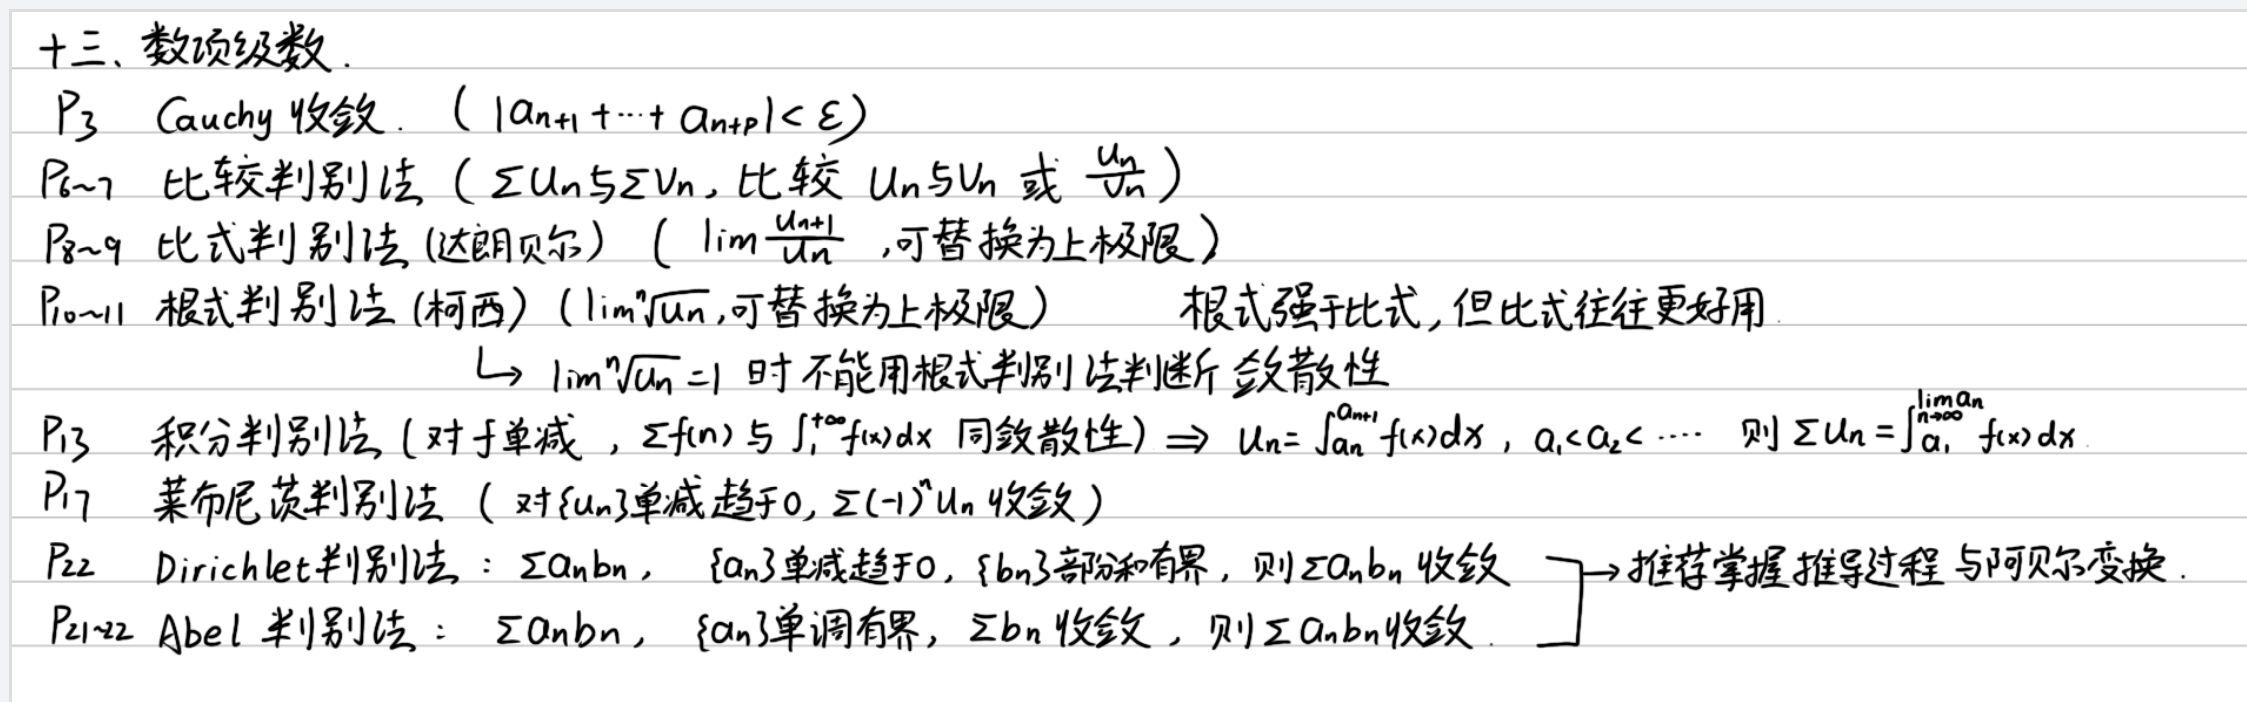 十三、数项级数.
P3 Cauchy 收敛. (|an+1+…+an+p|<ε)
P6~7 比较判别法 (ΣUn与ΣVn, 比较 Un与Vn 或 Un/Vn)
P8~9 比式判别法 (达朗贝尔) (lim Un+1/Un ,可替换为上极限)
P10~11 根式判别法 (柯西) (lim ⁿ√Un,可替换为上极限) 根式强于比式,但比式往往更好用.
↳ lim ⁿ√Un =1 时不能用根式判别法判断敛散性
P13 积分判别法 (对f单减, Σf(n) 与 ∫₁^{+∞} f(x)dx 同敛散性) ⇒ Un=∫_{an}^{an+1} f(x)dx, a₁<a₂<…… 则 ΣUn=∫_{a₁}^{lim n→∞ an} f(x)dx.
P17 莱布尼茨判别法 (对{un}单减趋于0, Σ(-1)ⁿUn 收敛)
P22 Dirichlet判别法: Σanbn, {an}单减趋于0, {bn}部分和有界, 则Σanbn 收敛 →推荐掌握推导过程与阿贝尔变换.
P21~22 Abel 判别法: Σanbn, {an}单调有界, Σbn 收敛, 则Σanbn收敛.